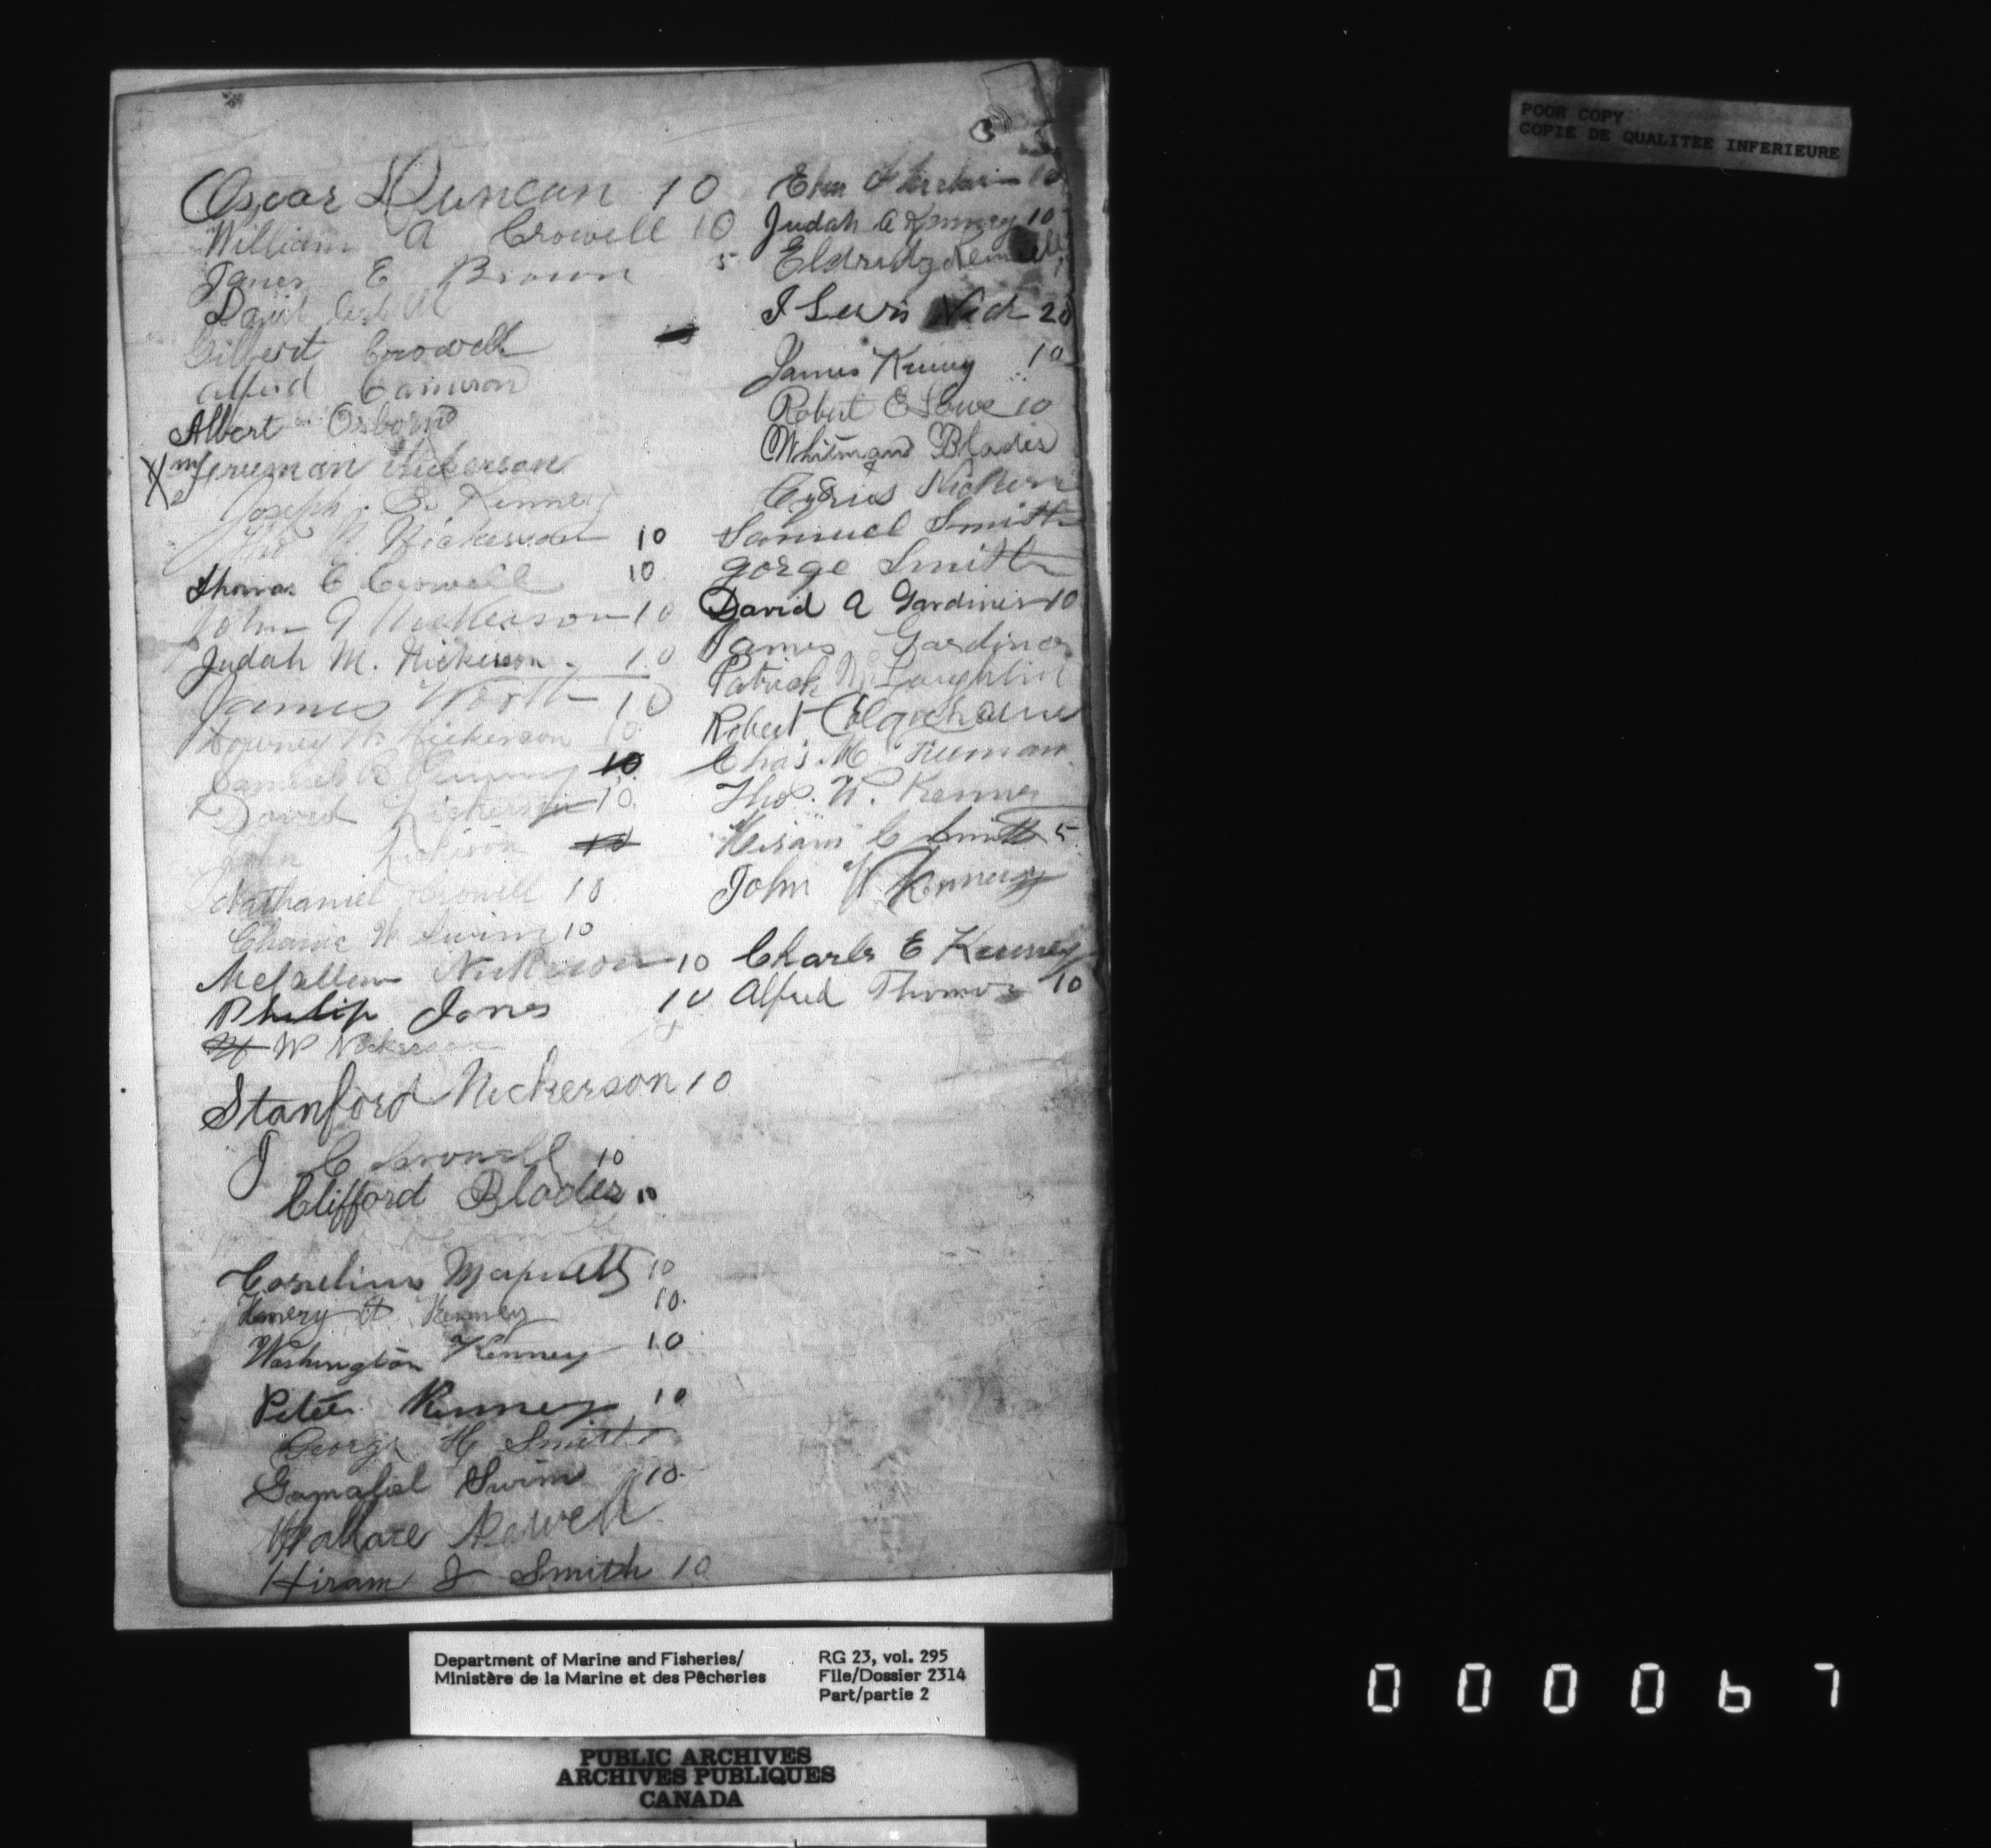 Oscar Duncan 10
William A Crowell 10
James E Brown 5
David
Gilbert Crowell
Alfred Cameron
Albert Osborne
Freeman Nickerson
Joseph S. Kenney
Nickerson 10
Thomas C Crowell 10
John G Nickerson 10
Judah M. Nickerson 10
James Worth 10
Downey W. Nickerson 10
Samuel 10
David Nickerson 10
John Nickerson 10
Nathaniel Crowell 10
W Swim 10
McCallum Nickerson 10
Philip Jones 10
W Nickerson
Stanford Nickerson 10
J C Crowell 10
Clifford Blades 10
Cornelius 10
Emery A Kenney 10.
Washington Kenney 10
Peter Kenney 10
George H Smith
Gamaliel Swim 10
Wallace Newell
Hiram J Smith 10
10
Judah A Kenney 10
Eldridge
J Lewis Nick 20
James Kenney 10
Robert E 10
Whitman Blades
Cyrus Nickerson
Samuel Smith
gorge Smith
David A Gardiner 10
James Gardiner
Patrick McLaughlin
Robert Colquhoune
Chas. M.
Thos. W. Kenney
Hiram C Smith 5
John W Kenney
Charles E Kenney
Alfred Thomas 10
POOR COPY
COPIE DE QUALITEE INFERIEURE
Department of Marine and Fisheries/
Ministère de la Marine et des Pêcheries
RG 23, vol. 295
File/Dossier 2314
Part/partie 2
PUBLIC ARCHIVES
ARCHIVES PUBLIQUES
CANADA
000067